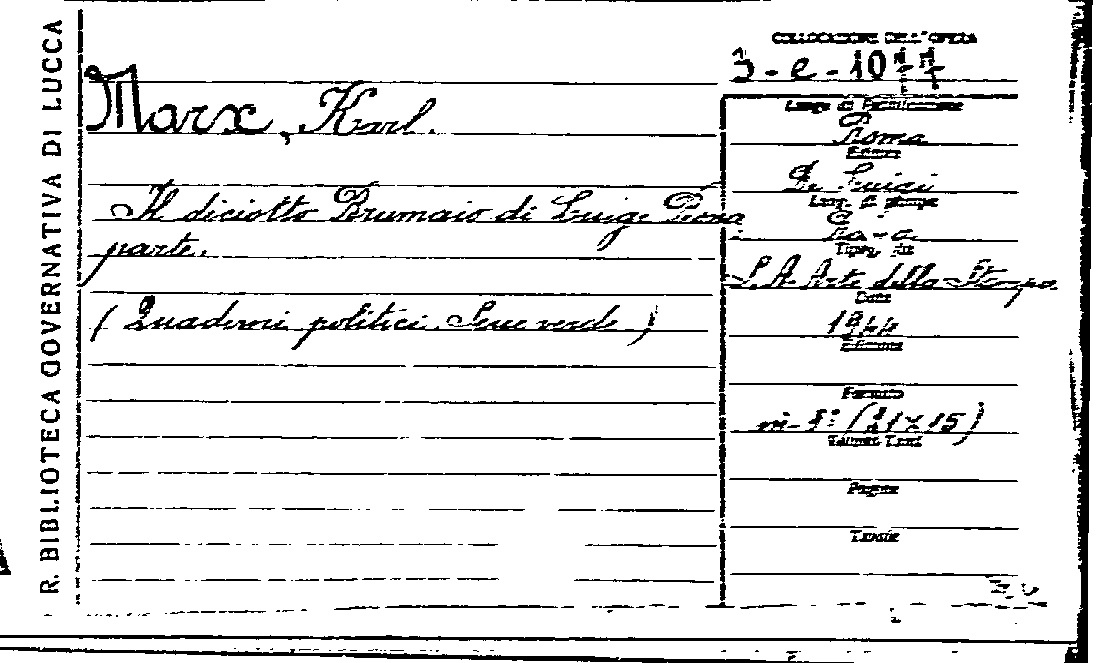 R. BIBLIOTECA GOVERNATIVA DI LUCCA
COLLOCAZIONE DELL'OPERA
3-e-1077
Marx, Karl.
Il diciotto Brumaio di Luigi Bona
parte.
(Quaderni politici. Serie verde)
Luogo di Pubblicazione
Roma
Editore
De Luigi
Luog. di stampa
Roma
Tipog. dit
S. A. Arte della Stampa
Data
1944
Edizione
Formato
in-8° (21x15)
Volumi Tomi
Pagine
Tavole